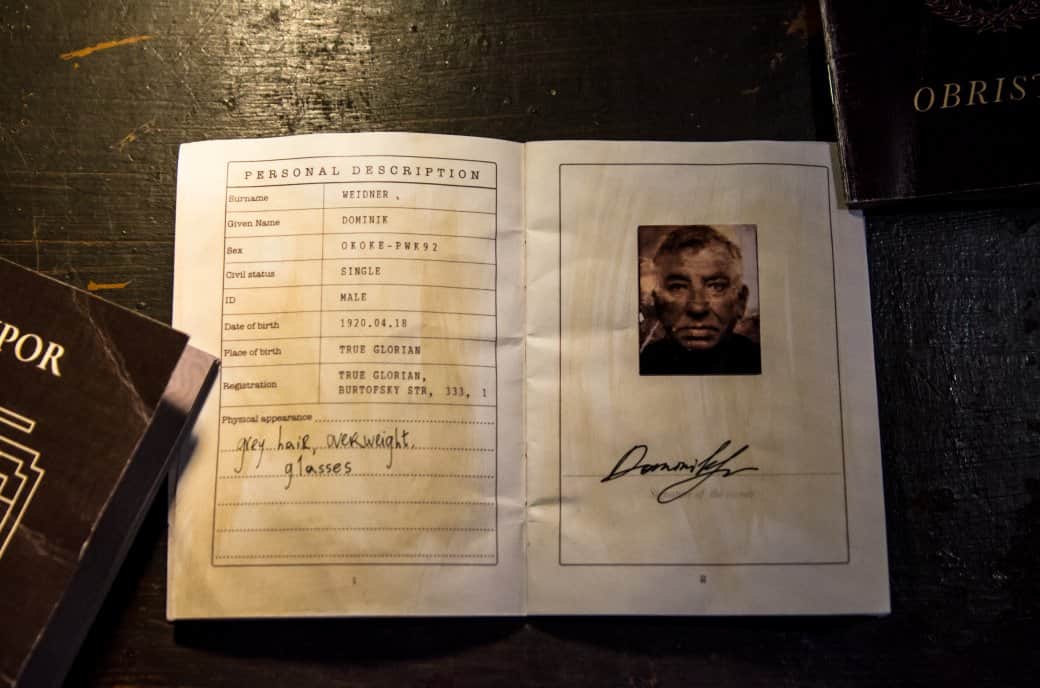 OBRIST
PERSONAL DESCRIPTION
Surname WEIDNER
Given Name DOMINIK
Sex OKOKE-PWK92
Civil status SINGLE
ID MALE
Date of birth 1920.04.18
Place of birth TRUE GLORIAN
Registration TRUE GLORIAN,
BURTOFSKY STR, 333, 1
Physical appearance
grey hair, overweight.
glasses
I
II
POR